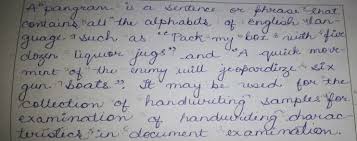 A "pangram" is a sentence or phrase that
contains "all" the alphabets of english lan-
guage such as "Pack my box with five
dozen liquor jugs" and "A quick move-
ment of the enmy will jeopardize six
gun boats". It may be used for the
collection of handwriting samples for
examination of handwriting charac-
teristics in document examination.